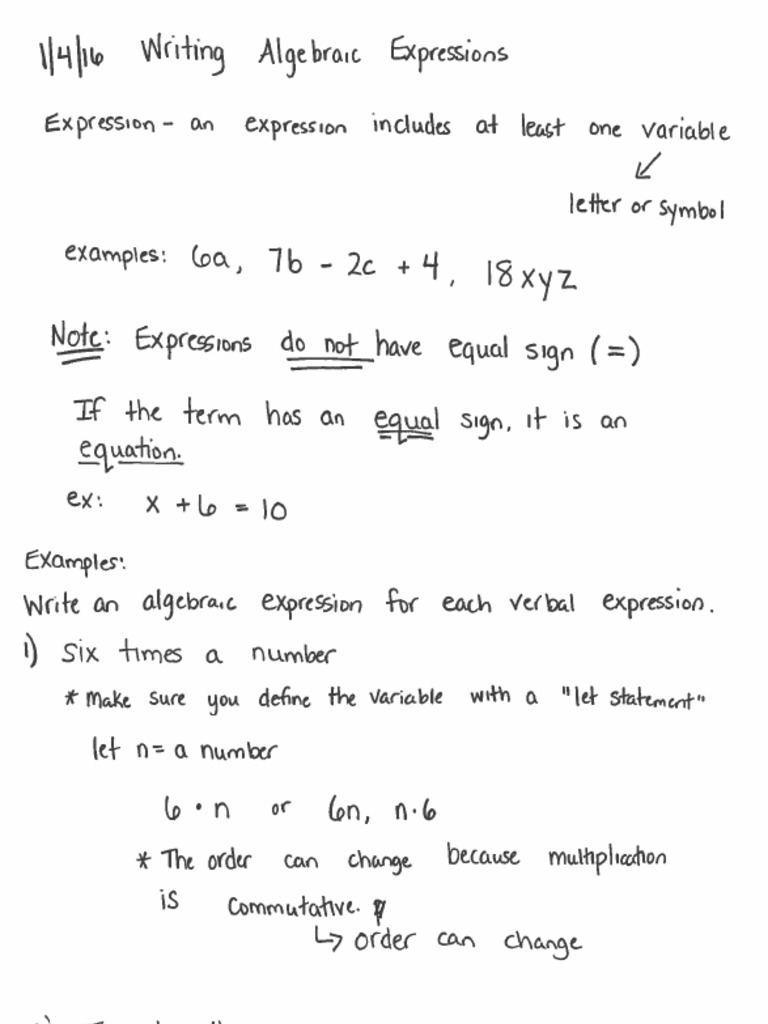 1/4/16 Writing Algebraic Expressions
Expression - an expression includes at least one variable
↙
letter or symbol
examples: 6a, 7b - 2c + 4, 18xyz
Note: Expressions do not have equal sign (=)
If the term has an equal sign, it is an
equation.
ex: x + 6 = 10
Examples:
Write an algebraic expression for each verbal expression.
1) Six times a number
* Make sure you define the variable with a "let statement"
let n = a number
6 · n or 6n, n · 6
* The order can change because multiplication
is commutative.
↳ order can change